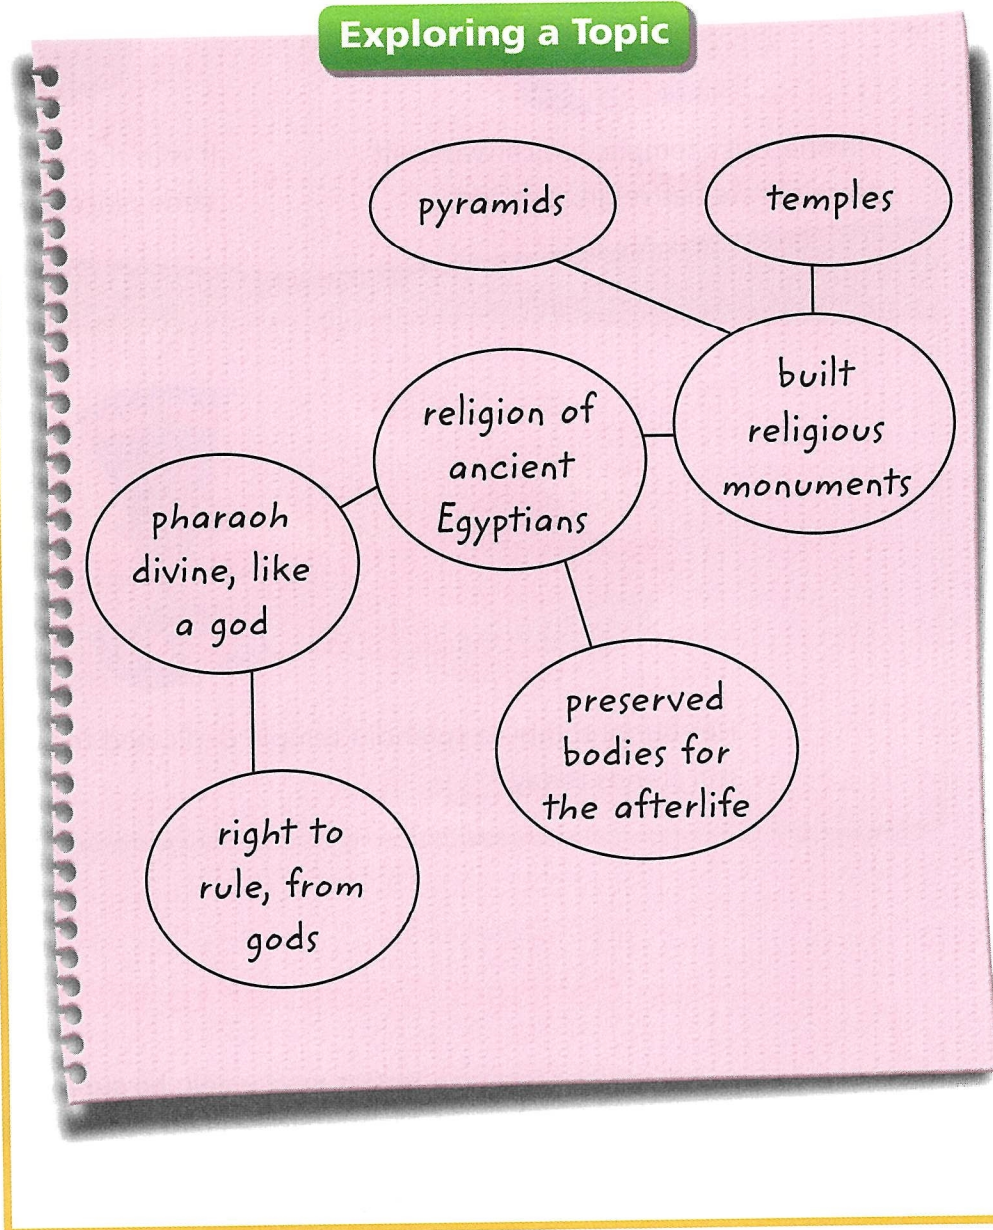 Exploring a Topic
pyramids
temples
built
religious
monuments
religion of
ancient
Egyptians
pharaoh
divine, like
a god
preserved
bodies for
the afterlife
right to
rule, from
gods